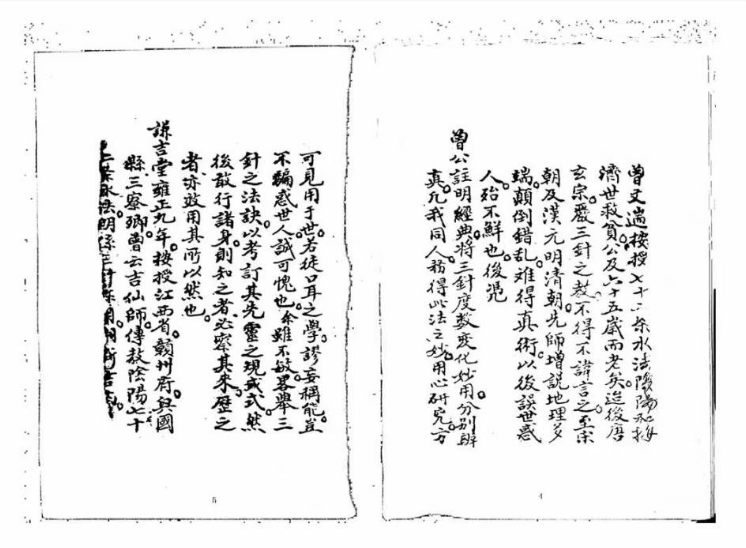 曾文遄按授七十二條水法陰陽和按
濟世救貧公及六十五歲而老矣迨後唐
玄宗嚴三針之教不得不諱言之至宋
朝及漢元明清朝先師增説地理多
端顛倒錯乱难得真術以後誤世惑
人殆不鮮也後凴
曾公註明經典将三針度数变化妙用分别辨
真凢我同人務得此法之妙用心研究方
4
可見用于世若徒口耳之學謬妄稱能豈
不騙惑世人誠可愧也余雖不敏畧舉三
針之法訣以考訂其先靈之現或式然
後敢行諸身則知之者必察其来歷之
者亦敢用其所以然也
謙吉堂雍正九年按授江西省贛州府興國
縣三寮鄉曾云吉仙師傳教陰陽七十
二条水法明
5